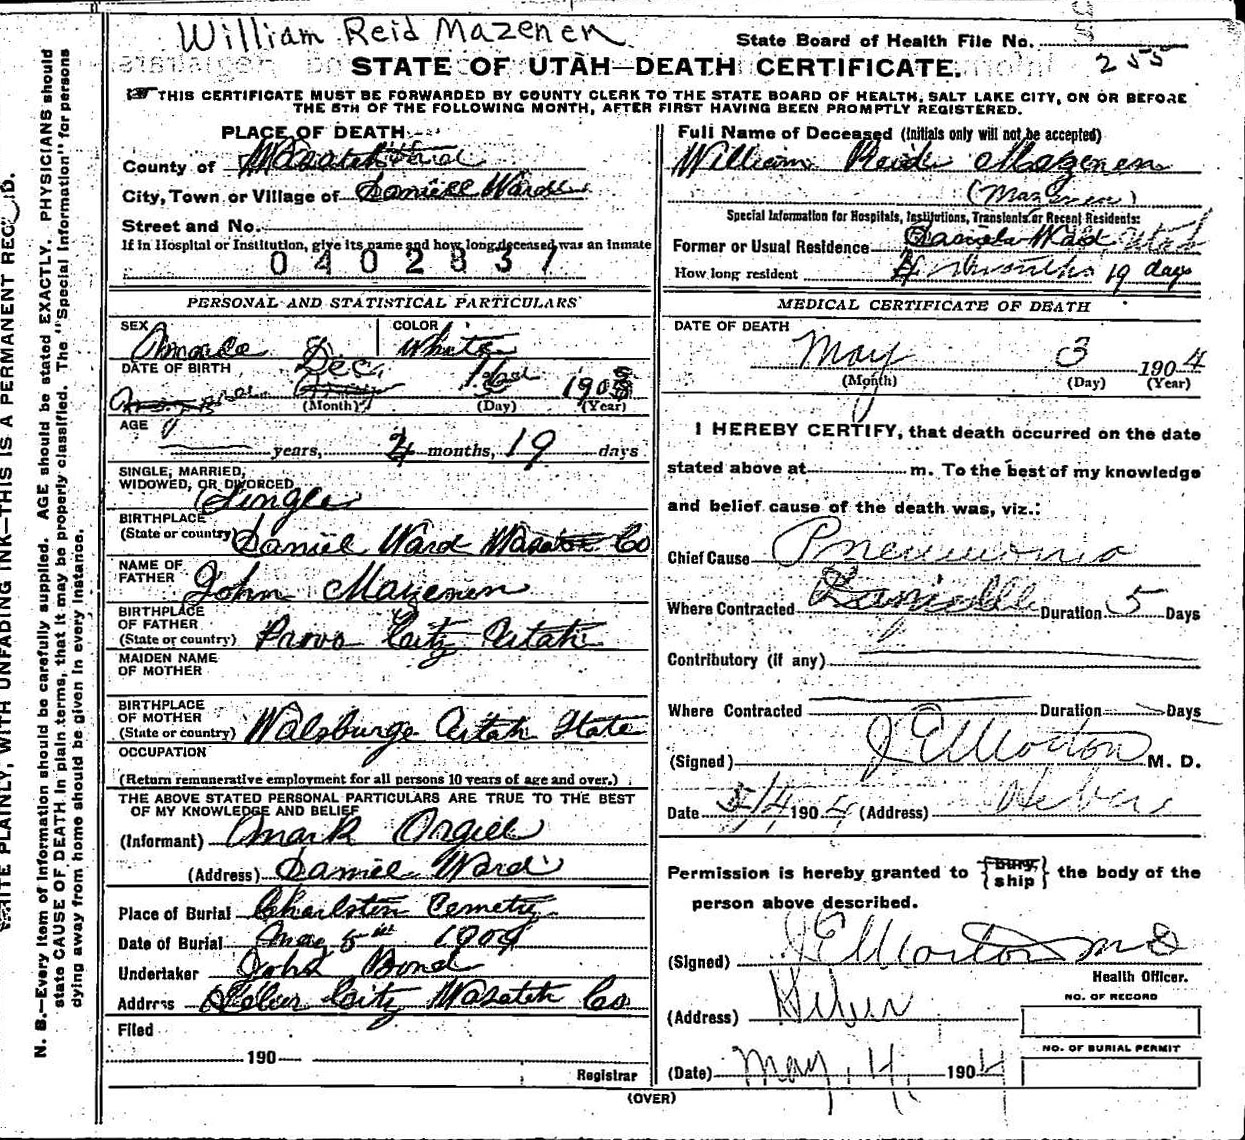 William Reid Mazenen
State Board of Health File No. 255
STATE OF UTAH—DEATH CERTIFICATE.
THIS CERTIFICATE MUST BE FORWARDED BY COUNTY CLERK TO THE STATE BOARD OF HEALTH, SALT LAKE CITY, ON OR BEFORE
THE 5TH OF THE FOLLOWING MONTH, AFTER FIRST HAVING BEEN PROMPTLY REGISTERED.
PLACE OF DEATH
County of Wasatch
City, Town or Village of Daniell Ward
Street and No.
If in Hospital or Institution, give its name and how long deceased was an inmate
0402837
PERSONAL AND STATISTICAL PARTICULARS
SEX
COLOR
Male White
DATE OF BIRTH
Dec. 190
(Month) (Day) (Year)
AGE
years, 4 months, 19 days
SINGLE, MARRIED,
WIDOWED, OR DIVORCED
Single
BIRTHPLACE
(State or country) Daniel Ward Wasatch Co
NAME OF
FATHER John Mazenen
BIRTHPLACE
OF FATHER
(State or country) Provo City Utah
MAIDEN NAME
OF MOTHER
BIRTHPLACE
OF MOTHER
(State or country) Walsburge Utah State
OCCUPATION
(Return remunerative employment for all persons 10 years of age and over.)
THE ABOVE STATED PERSONAL PARTICULARS ARE TRUE TO THE BEST
OF MY KNOWLEDGE AND BELIEF
(Informant) Mark Orgill
(Address) Daniel Ward
Place of Burial Charlston Cemetry
Date of Burial May 5 1904
Undertaker John Bond
Address Heber City Wasatch Co
Filed
190
Registrar
Full Name of Deceased (Initials only will not be accepted)
William Reid Mazenen
Special Information for Hospitals, Institutions, Transients or Recent Residents:
Former or Usual Residence Daniels Ward, Utah
How long resident 4 months 19 days
MEDICAL CERTIFICATE OF DEATH
DATE OF DEATH
May 3 1904
(Month) (Day) (Year)
I HEREBY CERTIFY, that death occurred on the date
stated above at m. To the best of my knowledge
and belief cause of the death was, viz.:
Chief Cause Pneumonia
Where Contracted Danielle Duration 5 Days
Contributory (if any)
Where Contracted Duration Days
(Signed) J E Morton M. D.
Date 5/4 1904 (Address) Heber
Permission is hereby granted to {bury ship} the body of the
person above described.
(Signed) J E Morton MD
Health Officer.
(Address) Heber
NO. OF RECORD
NO. OF BURIAL PERMIT
(Date) May, 4, 1904
(OVER)
WRITE PLAINLY, WITH UNFADING INK—THIS IS A PERMANENT RECORD.
N. B.—Every item of information should be carefully supplied. AGE should be stated EXACTLY. PHYSICIANS should
state CAUSE OF DEATH in plain terms, that it may be properly classified. The "Special Information" for persons
dying away from home should be given in every instance.